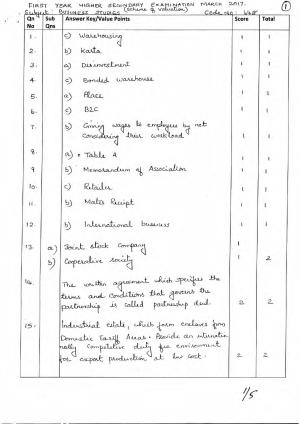 FIRST YEAR HIGHER SECONDARY EXAMINATION MARCH 2017.
①
Subject: BUSINESS STUDIES (Scheme of Valuation) Code No:
Qn No Sub Qns Answer Key/Value Points Score Total
1. c) Warehousing 1 1
2. b) Karta 1 1
3. a) Disinvestment 1 1
4. c) Bonded warehouse 1 1
5. a) Place 1 1
6. c) B2C 1 1
7. b) Giving wages to employees by not
considering their workload 1 1
8. a) Table A 1 1
9. b) Memorandum of Association 1 1
10. c) Retailer 1 1
11. b) Mate's Receipt 1 1
12. b) International business 1 1
13. a) Joint stock Company 1
b) Cooperative society 1 2
14. The written agreement which specifies the
terms and Conditions that governs the
partnership is called partnership deed. 2 2
15. Industrial estate, which form enclaves from
Domestic Tariff Areas. Provide an internatio
nally Competitive duty free environment
for export production at low cost. 2 2
1/5